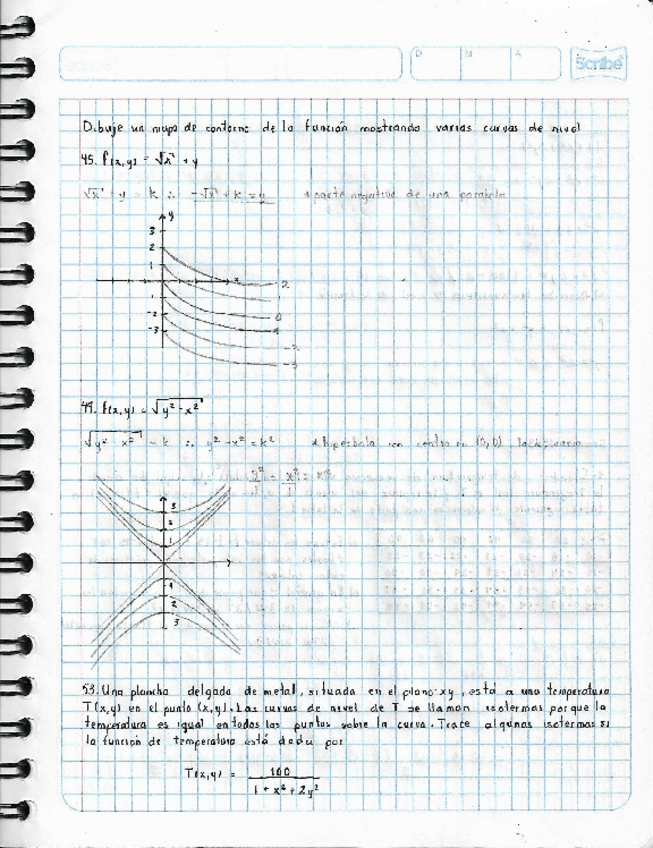 D M A
Scribe
Dibuje un mapa de contorno de la función mostrando varias curvas de nivel
45. f(x,y) = √x + y
√x + y = k ∴ -√x + k = y *parte negativa de una parabola
y
3
2
1
x
2
1
0
-1
-2
-3
-2
-3
49. f(x,y) = √y² - x²
√y² - x² = k ∴ y² - x² = k² *hiperbola con centro en (0,0)
y² - x² = k²
3
2
1
1
2
3
53. Una plancha delgada de metal, situada en el plano xy, está a una temperatura
T(x,y) en el punto (x,y). Las curvas de nivel de T se llaman isotermas porque la
temperatura es igual en todos los puntos sobre la curva. Trace algunas isotermas si
la función de temperatura está dada por
T(x,y) = 100
1 + x² + 2y²